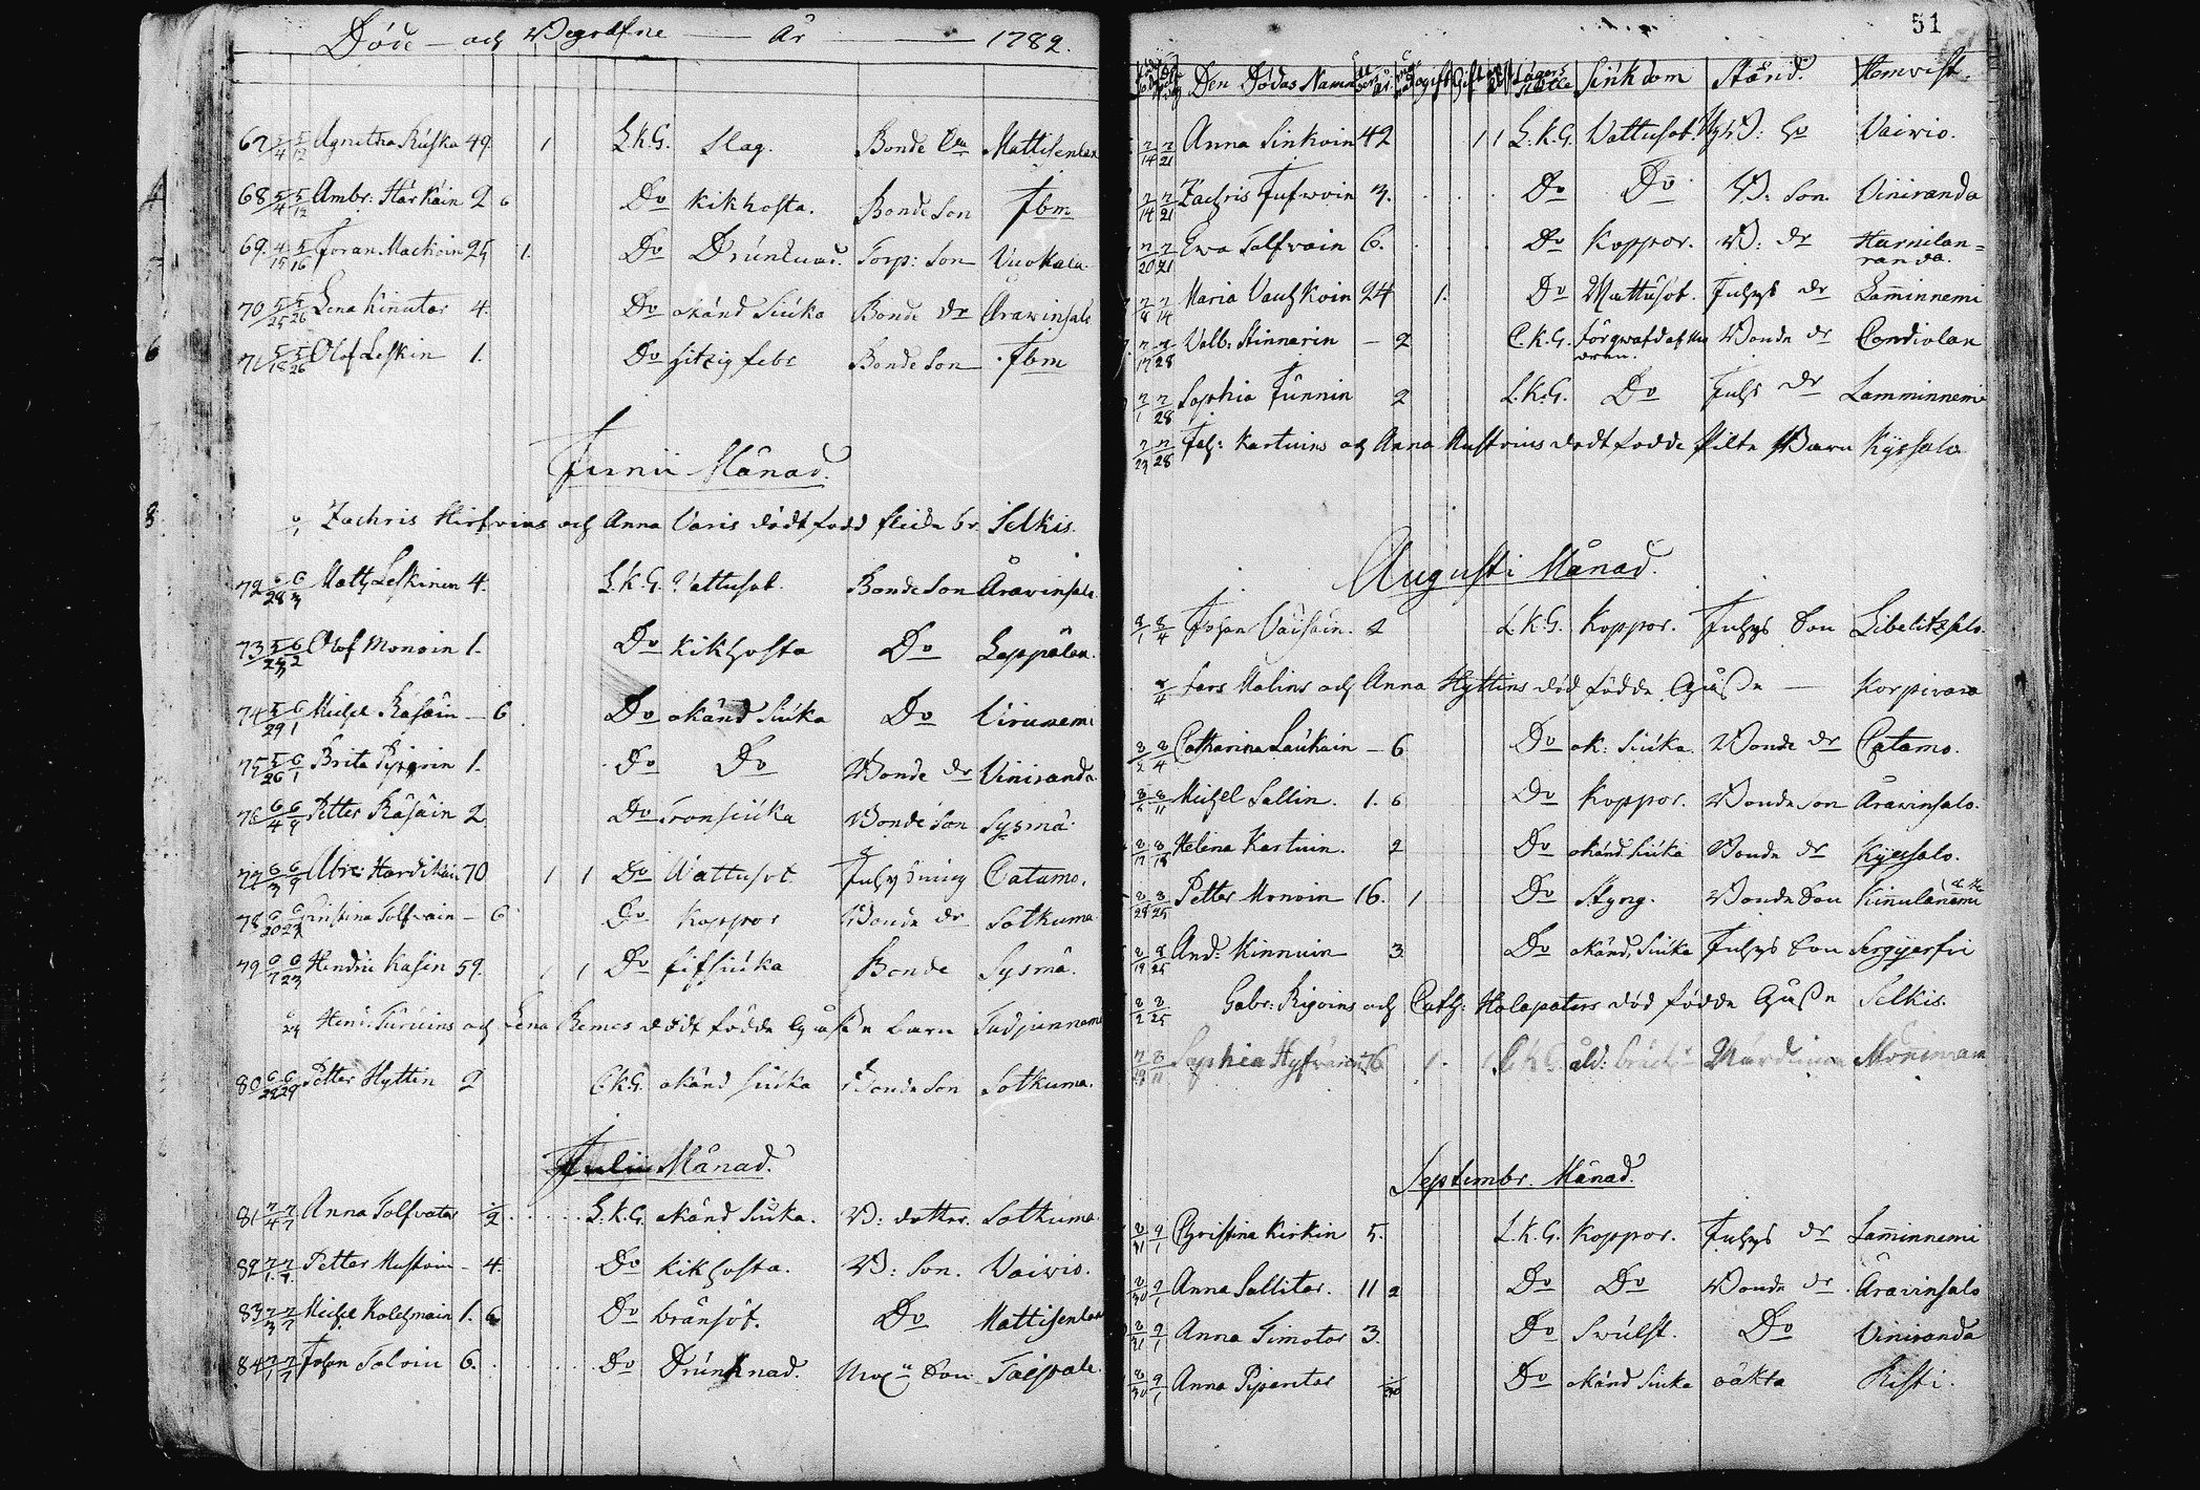 Döde - och Begrafne - År - 1782.
67 5/4 5/12 Agnetha Kuska 49. 1 L.K.G. Slag. Bonde Mattisenlax
68 5/4 5/12 Ambr: Härkäin 2 6 Do kikhosta. Bonde Son Ibm
69. 4/15 5/16 Joran Machoin 25 1. Do Drunknad. Torp: Son Vuokala.
70 5/25 5/26 Lena Kinutar 4. Do okänd Siuka Bonde dr Aravinsalo
71 5/18 5/26 Olof Leskin 1. Do hitzig febr Bonde Son Ibm
Junii Månad.
Zachris Hirfvins och Anna Varis dödt född flicke br. Selkis.
72 5/28 6/3 Matts Leskinen 4. L.K.G. Vattusot. Bonde Son Aravinsalo.
73 5/24 6/2 Olof Monoin 1. Do kikhosta Do Leppälax.
74 5/29 6/1 Michel Räsäin - 6 Do okänd Siuka Do Uirunemi
75 5/26 6/1 Brita Piparin 1. Do Do Bonde dr Viniranda.
76 6/4 6/9 Petter Räsäin 2. Do Bonde Son Sysmä.
77 6/3 6/9 Abr: Hardikain 70 1 1 Do Vattusot. Inhys Catamo.
78 6/20 6/23 Christina Tolfvain - 6 Do Koppor Bonde dr Sotkuma
79 6/7 6/23 Hendric Kasin 59. 1 1 Do Bonde Sysmä.
6/24 Henr: Turuins och Lena Remes dödt födde Gåsse barn
80 6/24 6/29 Petter Hyttin 2 C.K.G. okänd Siuka Bonde Son Sotkuma.
Julii Månad.
81 7/4 7/7 Anna Tolfvatar 2 L.K.G. okänd Siuka. B: dotter. Sotkuma
82 7/1 7/7 Petter Mustoin - 4. Do kikhosta. B: Son. Vaivio.
83 7/3 7/7 Michel Kolehmain 1. 6 Do brånsot. Do Mattisenlax
84 7/1 7/7 Johan Tolvin 6. Do Drunknad. Son Taipale.
51
Den Dödas Namn år ogift Gift Lägerställe Siukdom Stånd. Hemvist.
7/14 7/21 Anna Sinkoin 42 1 1 L.K.G. Vattusot. Vaivio.
7/14 7/21 Zachris Tufwoin 3. Do Do B: Son. Viniranda
7/20 7/21 Ewa Tolfvain 6. Do Koppor. B: dr Harnilan=
randa.
7/8 7/14 Maria Vauhkoin 24 1. Do Vattusot. Inhys dr Laminnemi
7/17 7/28 Valb: Stinnerin - 2 C.K.G. Förqwafd af Bonde dr Condiolax
7/1 7/28 Sophia Tunnin 2 L.K.G. Do Inhys dr Lamminnemi
7/23 7/28 Joh: Kartuins och Anna Mustoins dödt födde Pilte Barn Kyssalo
Augusti Månad.
8/1 8/4 Johan Väisäin. 2 L.K.G. Koppor. Inhys Son Libelitzsalo.
8/4 Lars Malins och Anna Hyttins död födde Gåsse - Korpivara
8/2 8/4 Catharina Laukain - 6 Do ok: Siuka. Bonde dr Catamo.
8/6 8/11 Michel Sallin. 1. 6 Do Koppor. Bonde Son Aravinsalo.
8/17 8/18 Helena Kartuin. 2 Do okänd Siuka Bonde dr Kyssalo.
8/24 8/25 Petter Monoin 16. 1 Do Styng. Bonde Son Kinnulanemi
8/19 8/25 And: Kinnuin 3. Do okänd Siuka Inhys Son Sergyerfvi
8/2 8/25 Gabr: Rigoins och Cath: Holopatars död födde Gåsse Selkis.
Sophia Hyfvärin 76 1. L.K.G. åld: bräckl:
Septembr. Månad.
8/31 9/1 Christina Kirkin 5. L.K.G. Koppor. Inhys dr Laminnemi
8/30 9/1 Anna Sallitar. 11 2 Do Do Bonde dr Aravinsalo
8/21 9/1 Anna Timotar 3. Do Swulst. Do Viniranda
8/30 9/1 Anna Pipantar Do okänd Siuka oäkta Risti.